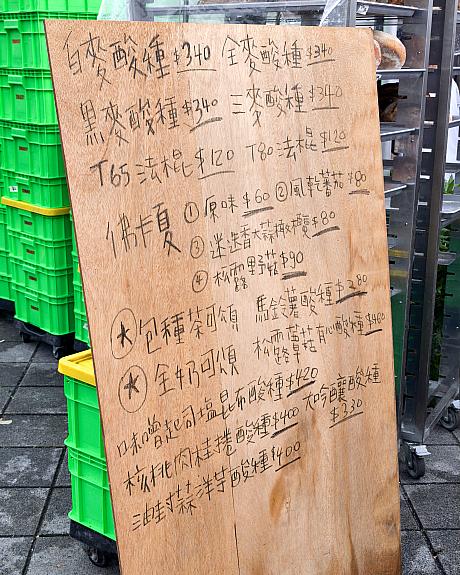 白麥酸種 $340 全麥酸種 $340
黑麥酸種 $340 三麥酸種 $340
T65 法棍 $120 T80 法棍 $120
佛卡夏 ① 原味 $60 ② 風乾蕃茄 $80
③ 迷迭香大蒜橄欖 $80
④ 松露野菇 $90
★ 包種茶可頌 馬鈴薯酸種 $280
★ 全奶可頌 松露蘑菇有心酸種 $460
味噌起司塩昆布酸種 $420 大吟釀酸種 $330
核桃肉桂捲酸種 $400
油封蒜洋芋酸種 $400